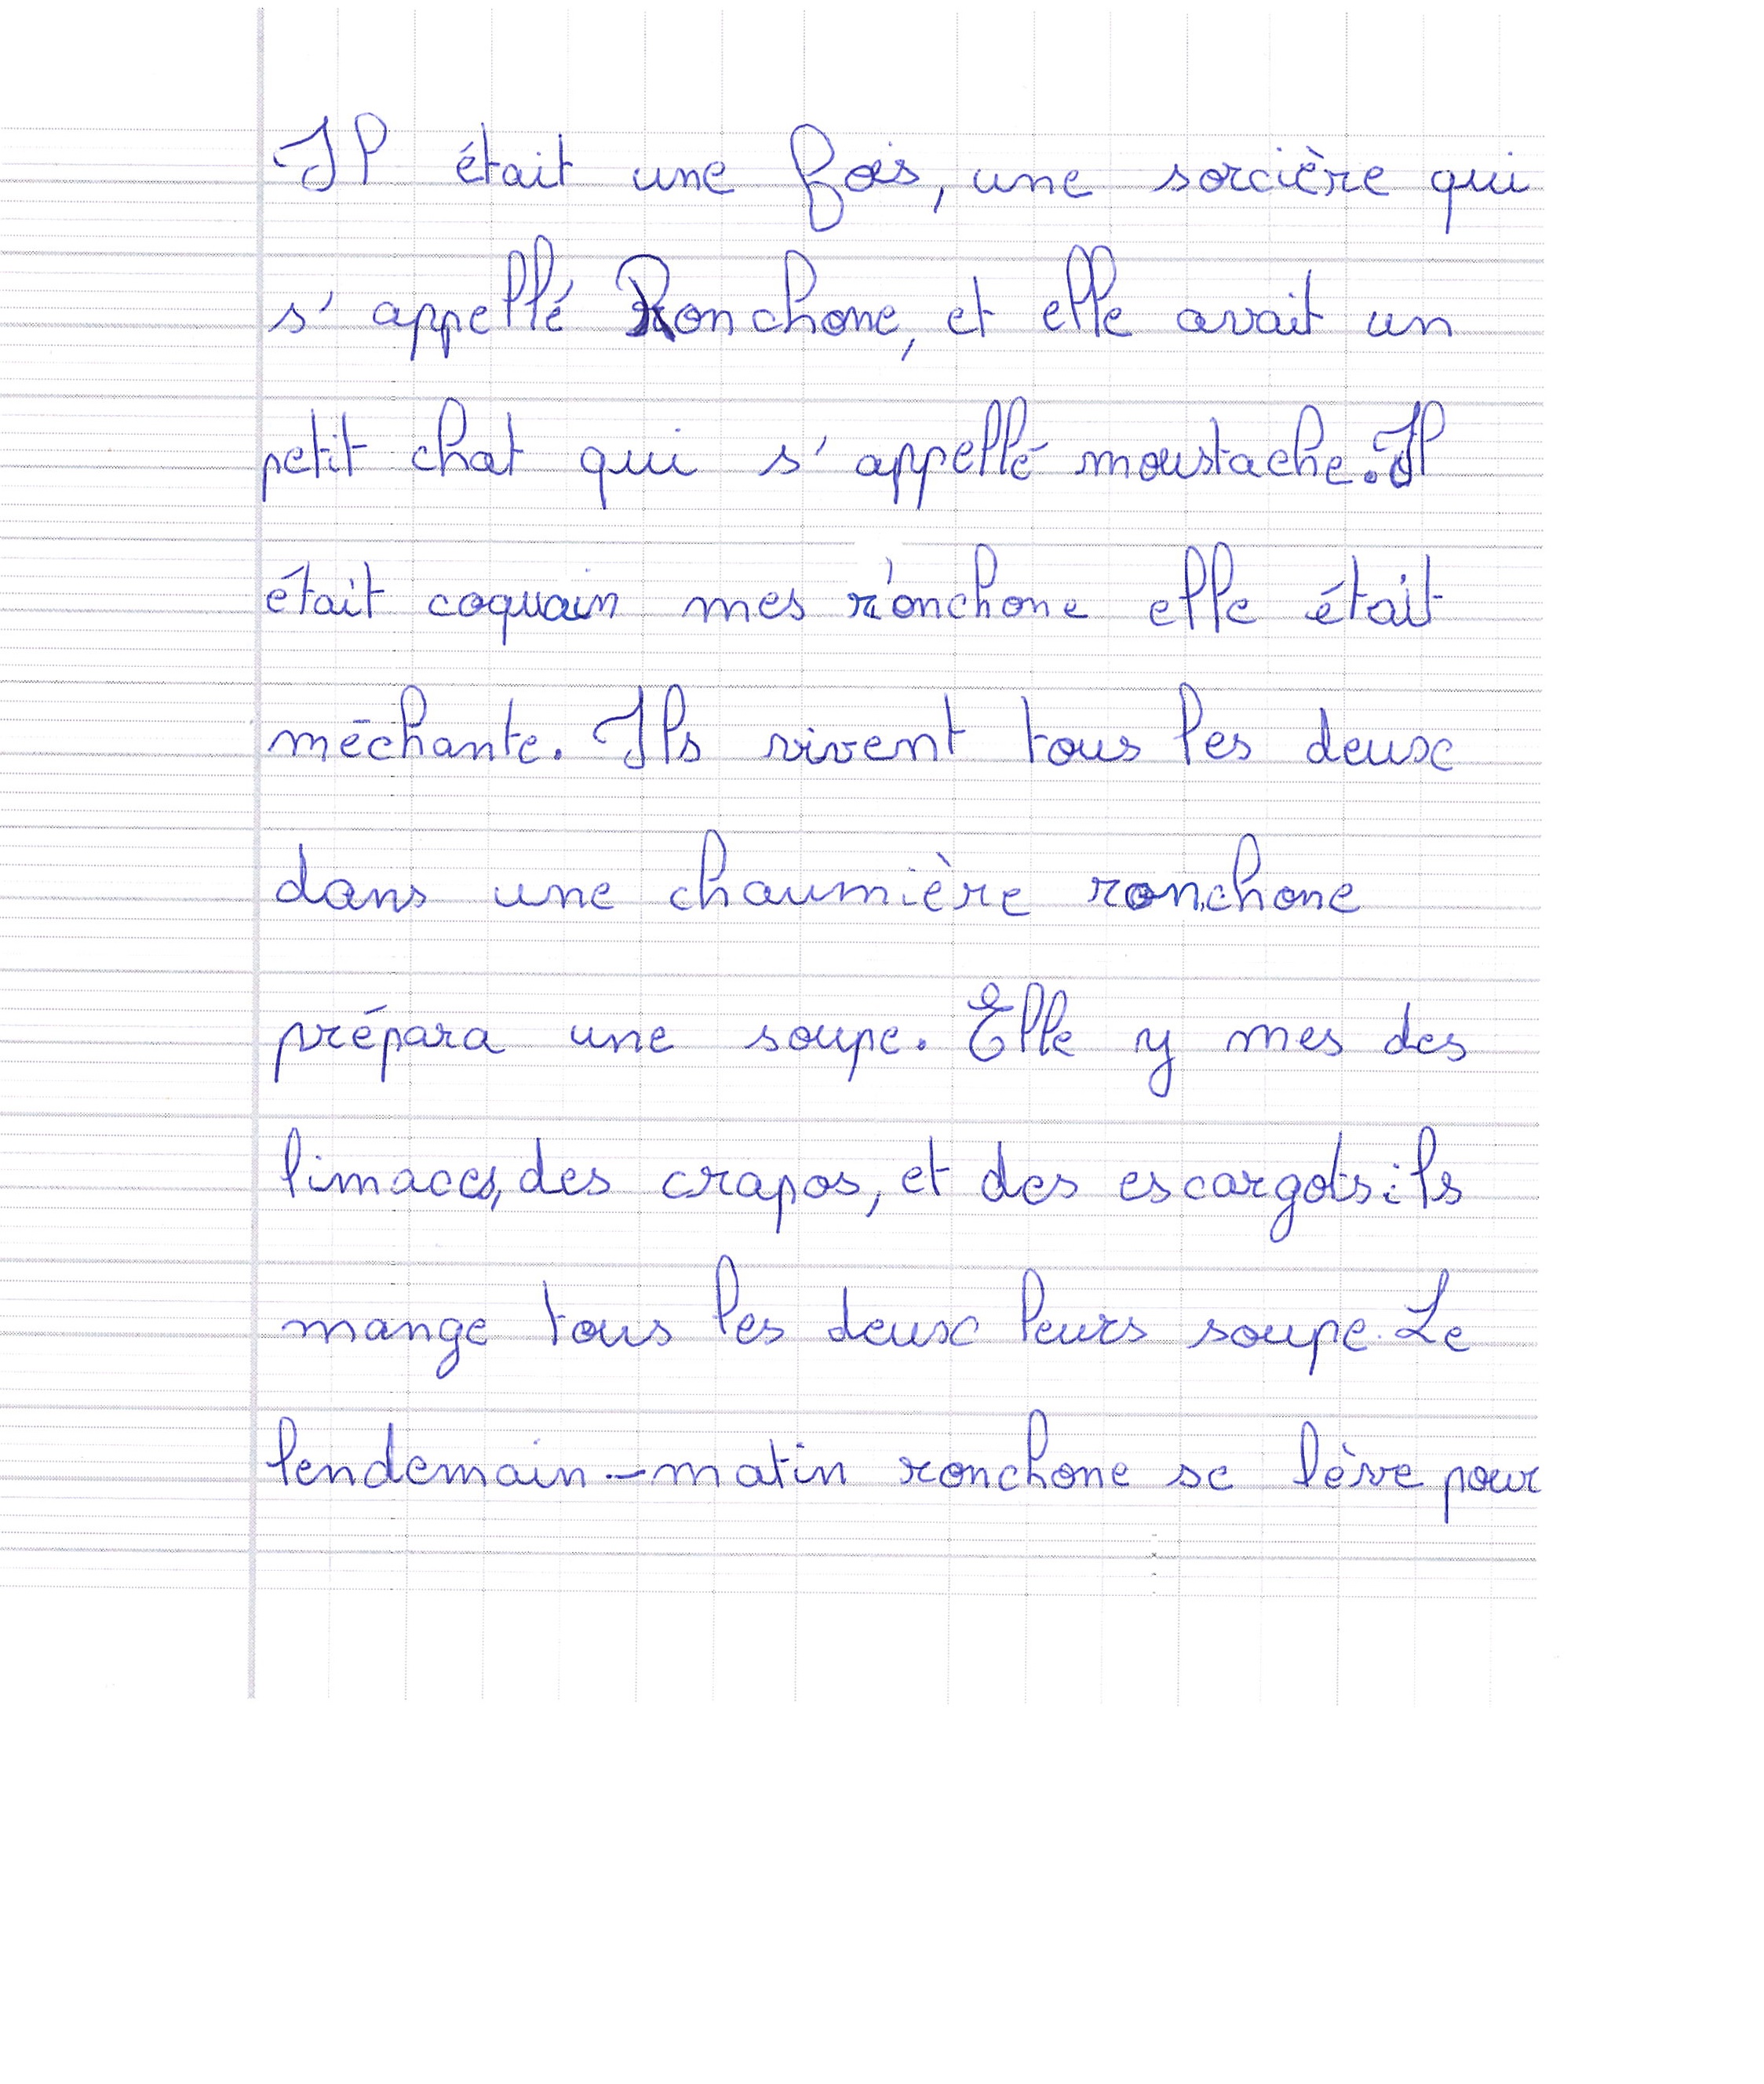 Il était une fois, une sorcière qui
s'appellé Ronchone, et elle avait un
petit chat qui s'appellé moustache. Il
était coquain mes ronchone elle était
méchante. Ils vivent tous les deux
dans une chaumière ronchone
prépara une soupe. Elle y mes des
limaces, des crapos, et des escargots ils
mange tous les deux leurs soupe. Le
lendemain-matin ronchone se lève pour